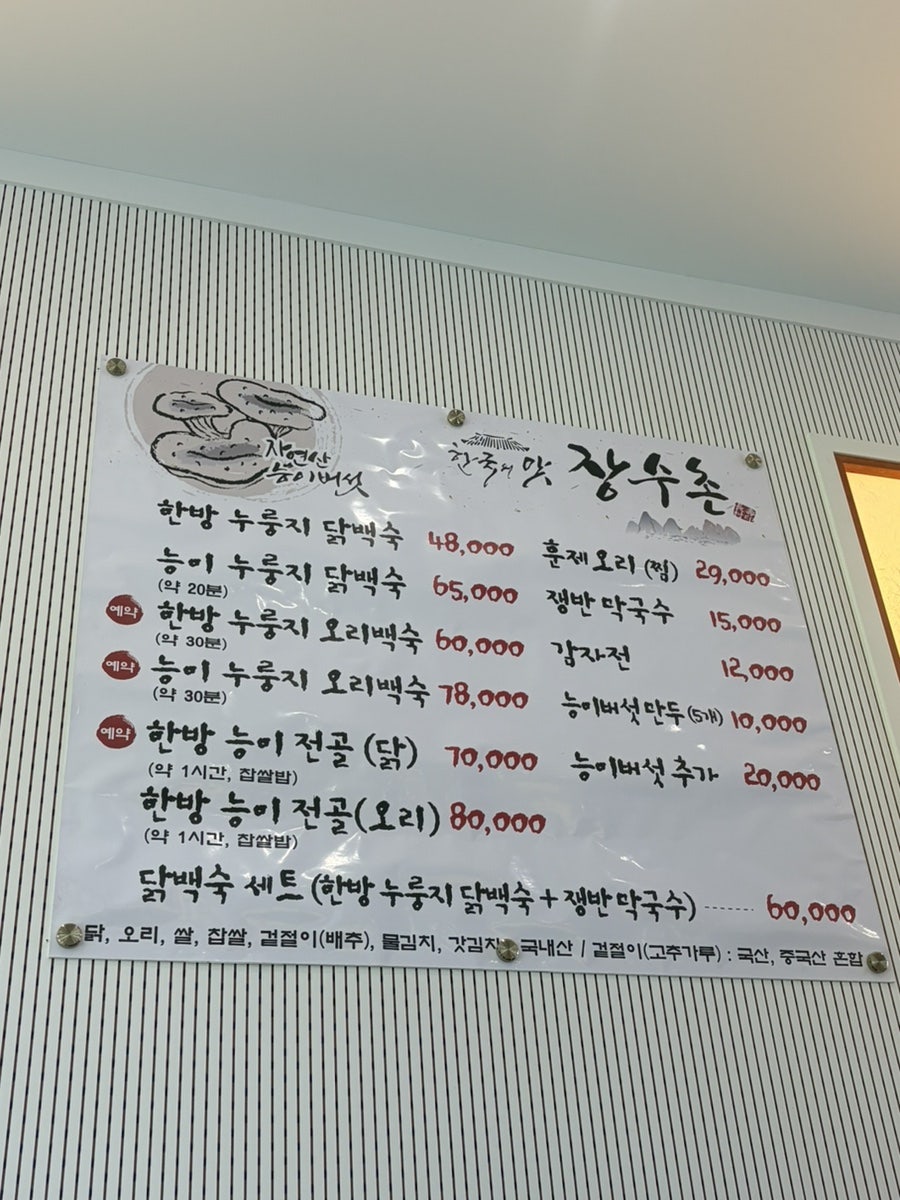 자연산
능이버섯
한국의 맛 장수촌
한방 누룽지 닭백숙 48,000
능이 누룽지 닭백숙 65,000
(약 20분)
예약 한방 누룽지 오리백숙 60,000
(약 30분)
예약 능이 누룽지 오리백숙 78,000
(약 30분)
예약 한방 능이 전골 (닭) 70,000
(약 1시간, 찹쌀밥)
한방 능이 전골(오리) 80,000
(약 1시간, 찹쌀밥)
훈제오리 (찜) 29,000
쟁반 막국수 15,000
감자전 12,000
능이버섯만두(5개) 10,000
능이버섯 추가 20,000
닭백숙 세트 (한방 누룽지 닭백숙 + 쟁반 막국수) ------ 60,000
닭, 오리, 쌀, 찹쌀, 겉절이(배추), 물김치, 갓김치 국내산 / 겉절이(고추가루) : 국산, 중국산 혼합